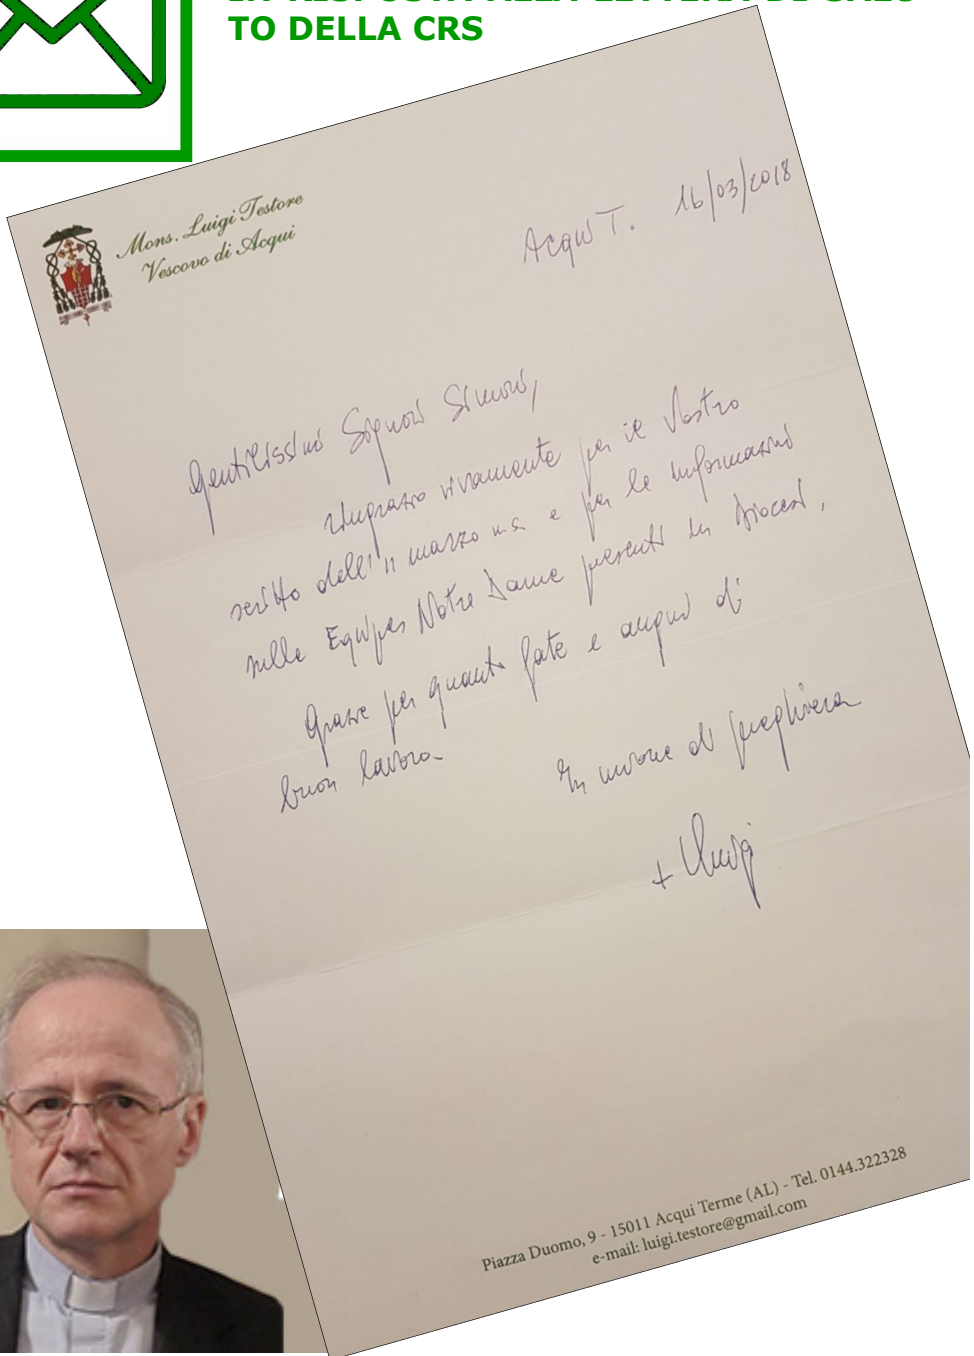 IN RISPOSTA ALLA LETTERA DI SALU-
TO DELLA CRS
Mons. Luigi Testore
Vescovo di Acqui
Acqui T. 16/03/2018
Gentilissimi Signori Simoni,
ringrazio vivamente per il Vostro
scritto dell'11 marzo u.s. e per le informazioni
sulle Equipes Notre Dame presenti in Diocesi.
Grazie per quanto fate e auguri di
buon lavoro.
In unione di preghiera
+ Luigi
Piazza Duomo, 9 - 15011 Acqui Terme (AL) - Tel. 0144.322328
e-mail: luigi.testore@gmail.com